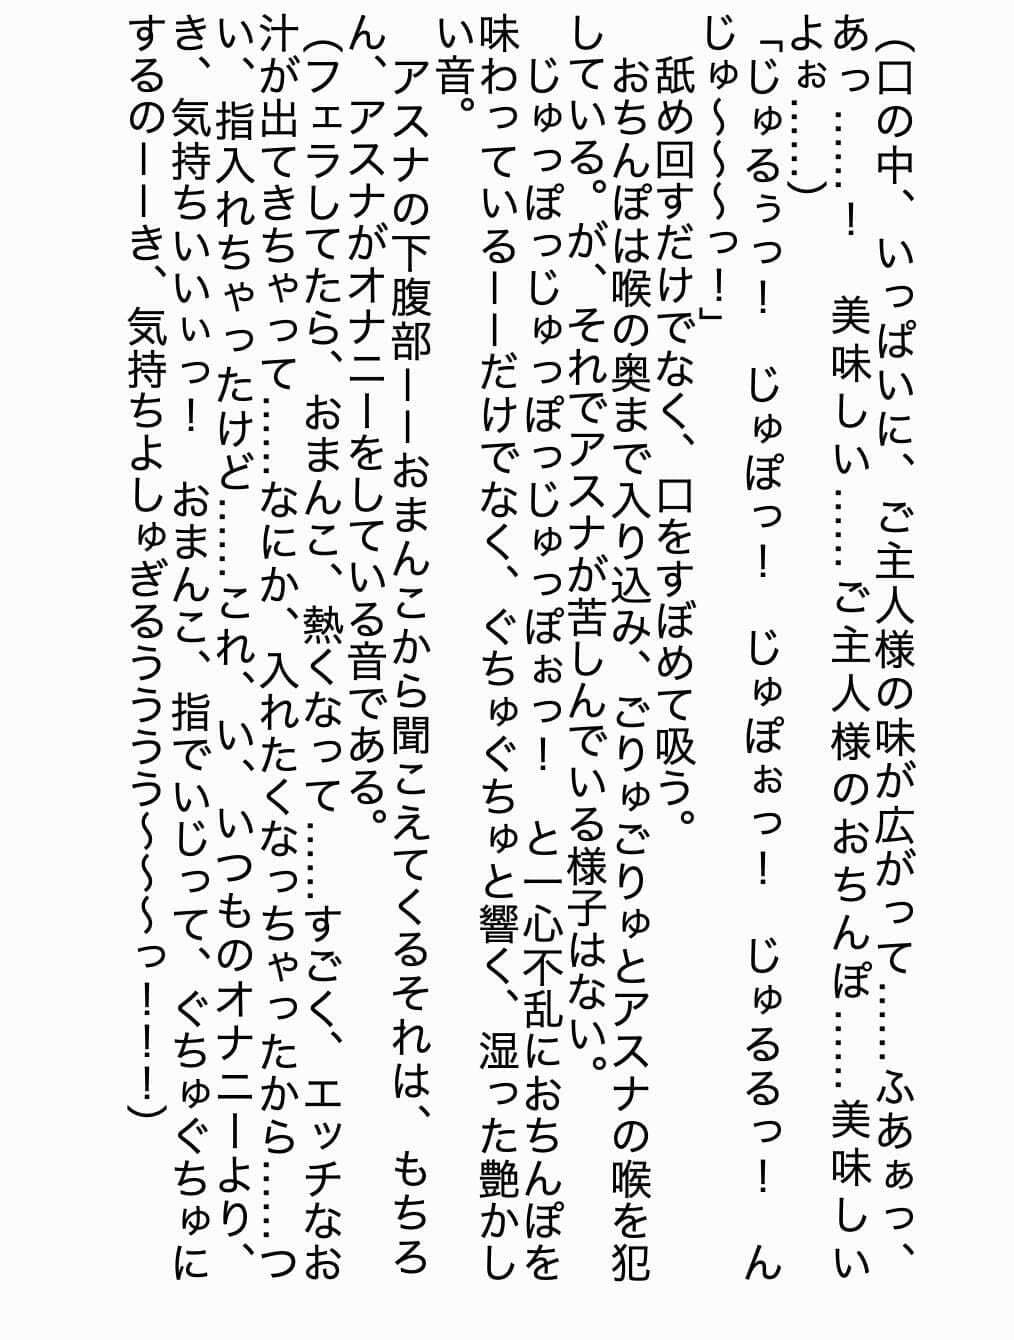 （口の中、いっぱいに、ご主人様の味が広がって……ふあぁっ、
あっ……！　美味しい……ご主人様のおちんぽ……美味しい
よぉ……）
「じゅるぅっ！　じゅぽっ！　じゅぽぉっ！　じゅるるっ！　ん
じゅ〜〜〜っ！」
　舐め回すだけでなく、口をすぼめて吸う。
　おちんぽは喉の奥まで入り込み、ごりゅごりゅとアスナの喉を犯
している。が、それでアスナが苦しんでいる様子はない。
　じゅっぽっじゅっぽっじゅっぽぉっ！　と一心不乱におちんぽを
味わっているーーだけでなく、ぐちゅぐちゅと響く、湿った艶かし
い音。
　アスナの下腹部ーーおまんこから聞こえてくるそれは、もちろ
ん、アスナがオナニーをしている音である。
（フェラしてたら、おまんこ、熱くなって……すごく、エッチなお
汁が出てきちゃって……なにか、入れたくなっちゃったから……つ
い、指入れちゃったけど……これ、い、いつものオナニーより、
き、気持ちいいぃっ！　おまんこ、指でいじって、ぐちゅぐちゅに
するのーーき、気持ちよしゅぎるぅうううう〜〜〜っ！！！）